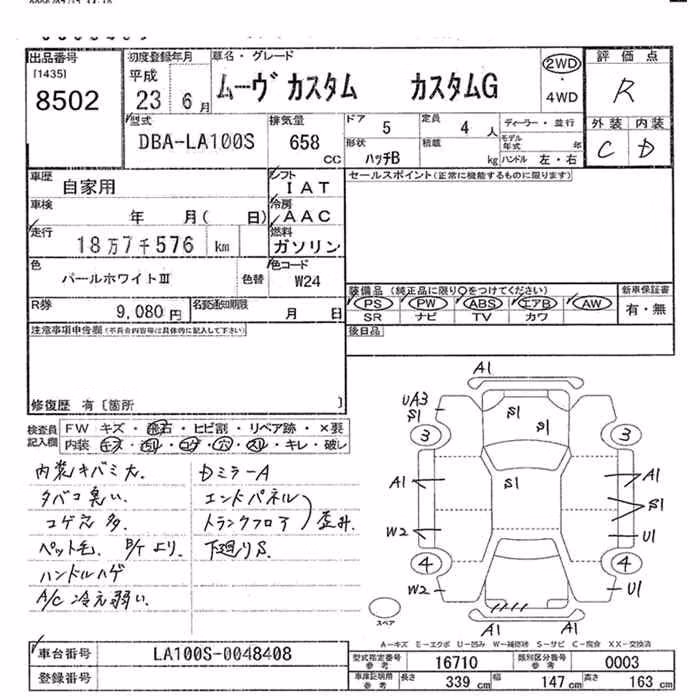 出品番号
[1435]
8502
初度登録年月
平成
23 6月
車名・グレード
ムーヴ カスタム カスタムG
2WD
・
4WD
評価点
R
外装 内装
C D
型式
DBA-LA100S
排気量
658
CC
ドア
5
定員
4 人
ディーラー・並行
形状
ハッチB
積載
kg
モデル年式 年
ハンドル 左・右
車歴
自家用
シフト
IAT
車検
年 月( 日)
冷房
AAC
走行
18万7千576 km
燃料
ガソリン
色
パールホワイトIII
色替
色コード
W24
R券
9,080 円
名変通知期限
月 日
セールスポイント(正常に機能するものに限ります)
装備品 (純正品に限り○をつけてください)
PS PW ABS エアB AW
SR ナビ TV カワ
新車保証書
有・無
後日品
注意事項申告欄(不具合内容等は具体的に記入して下さい)
修復歴 有〔箇所 〕
検査員
記入欄
FW キズ・飛石・ヒビ割・リペア跡・×要
内装 キズ・汚れ・コゲ・穴・スレ・キレ・破レ
内装キバミ大.
タバコ臭い.
コゲ穴 多.
ペット毛.
ハンドルハゲ
A/C 冷え弱い.
DミラーA
エンドパネル
トランクフロア
歪み.
下廻りS.
A1
UA3
S1
S1
S1
3
3
A1
S1
A1
S1
W2
U1
4
4
W2
U1
A1
A1
スペア
A-キズ E-エクボ U-凹み W-補修跡 S-サビ C-腐食 XX-交換済
車台番号
LA100S-0048408
登録番号
型式指定番号
参考
16710
類別区分番号
参考
0003
車庫証明用
参考
長さ
339 cm
幅
147 cm
高さ
163 cm